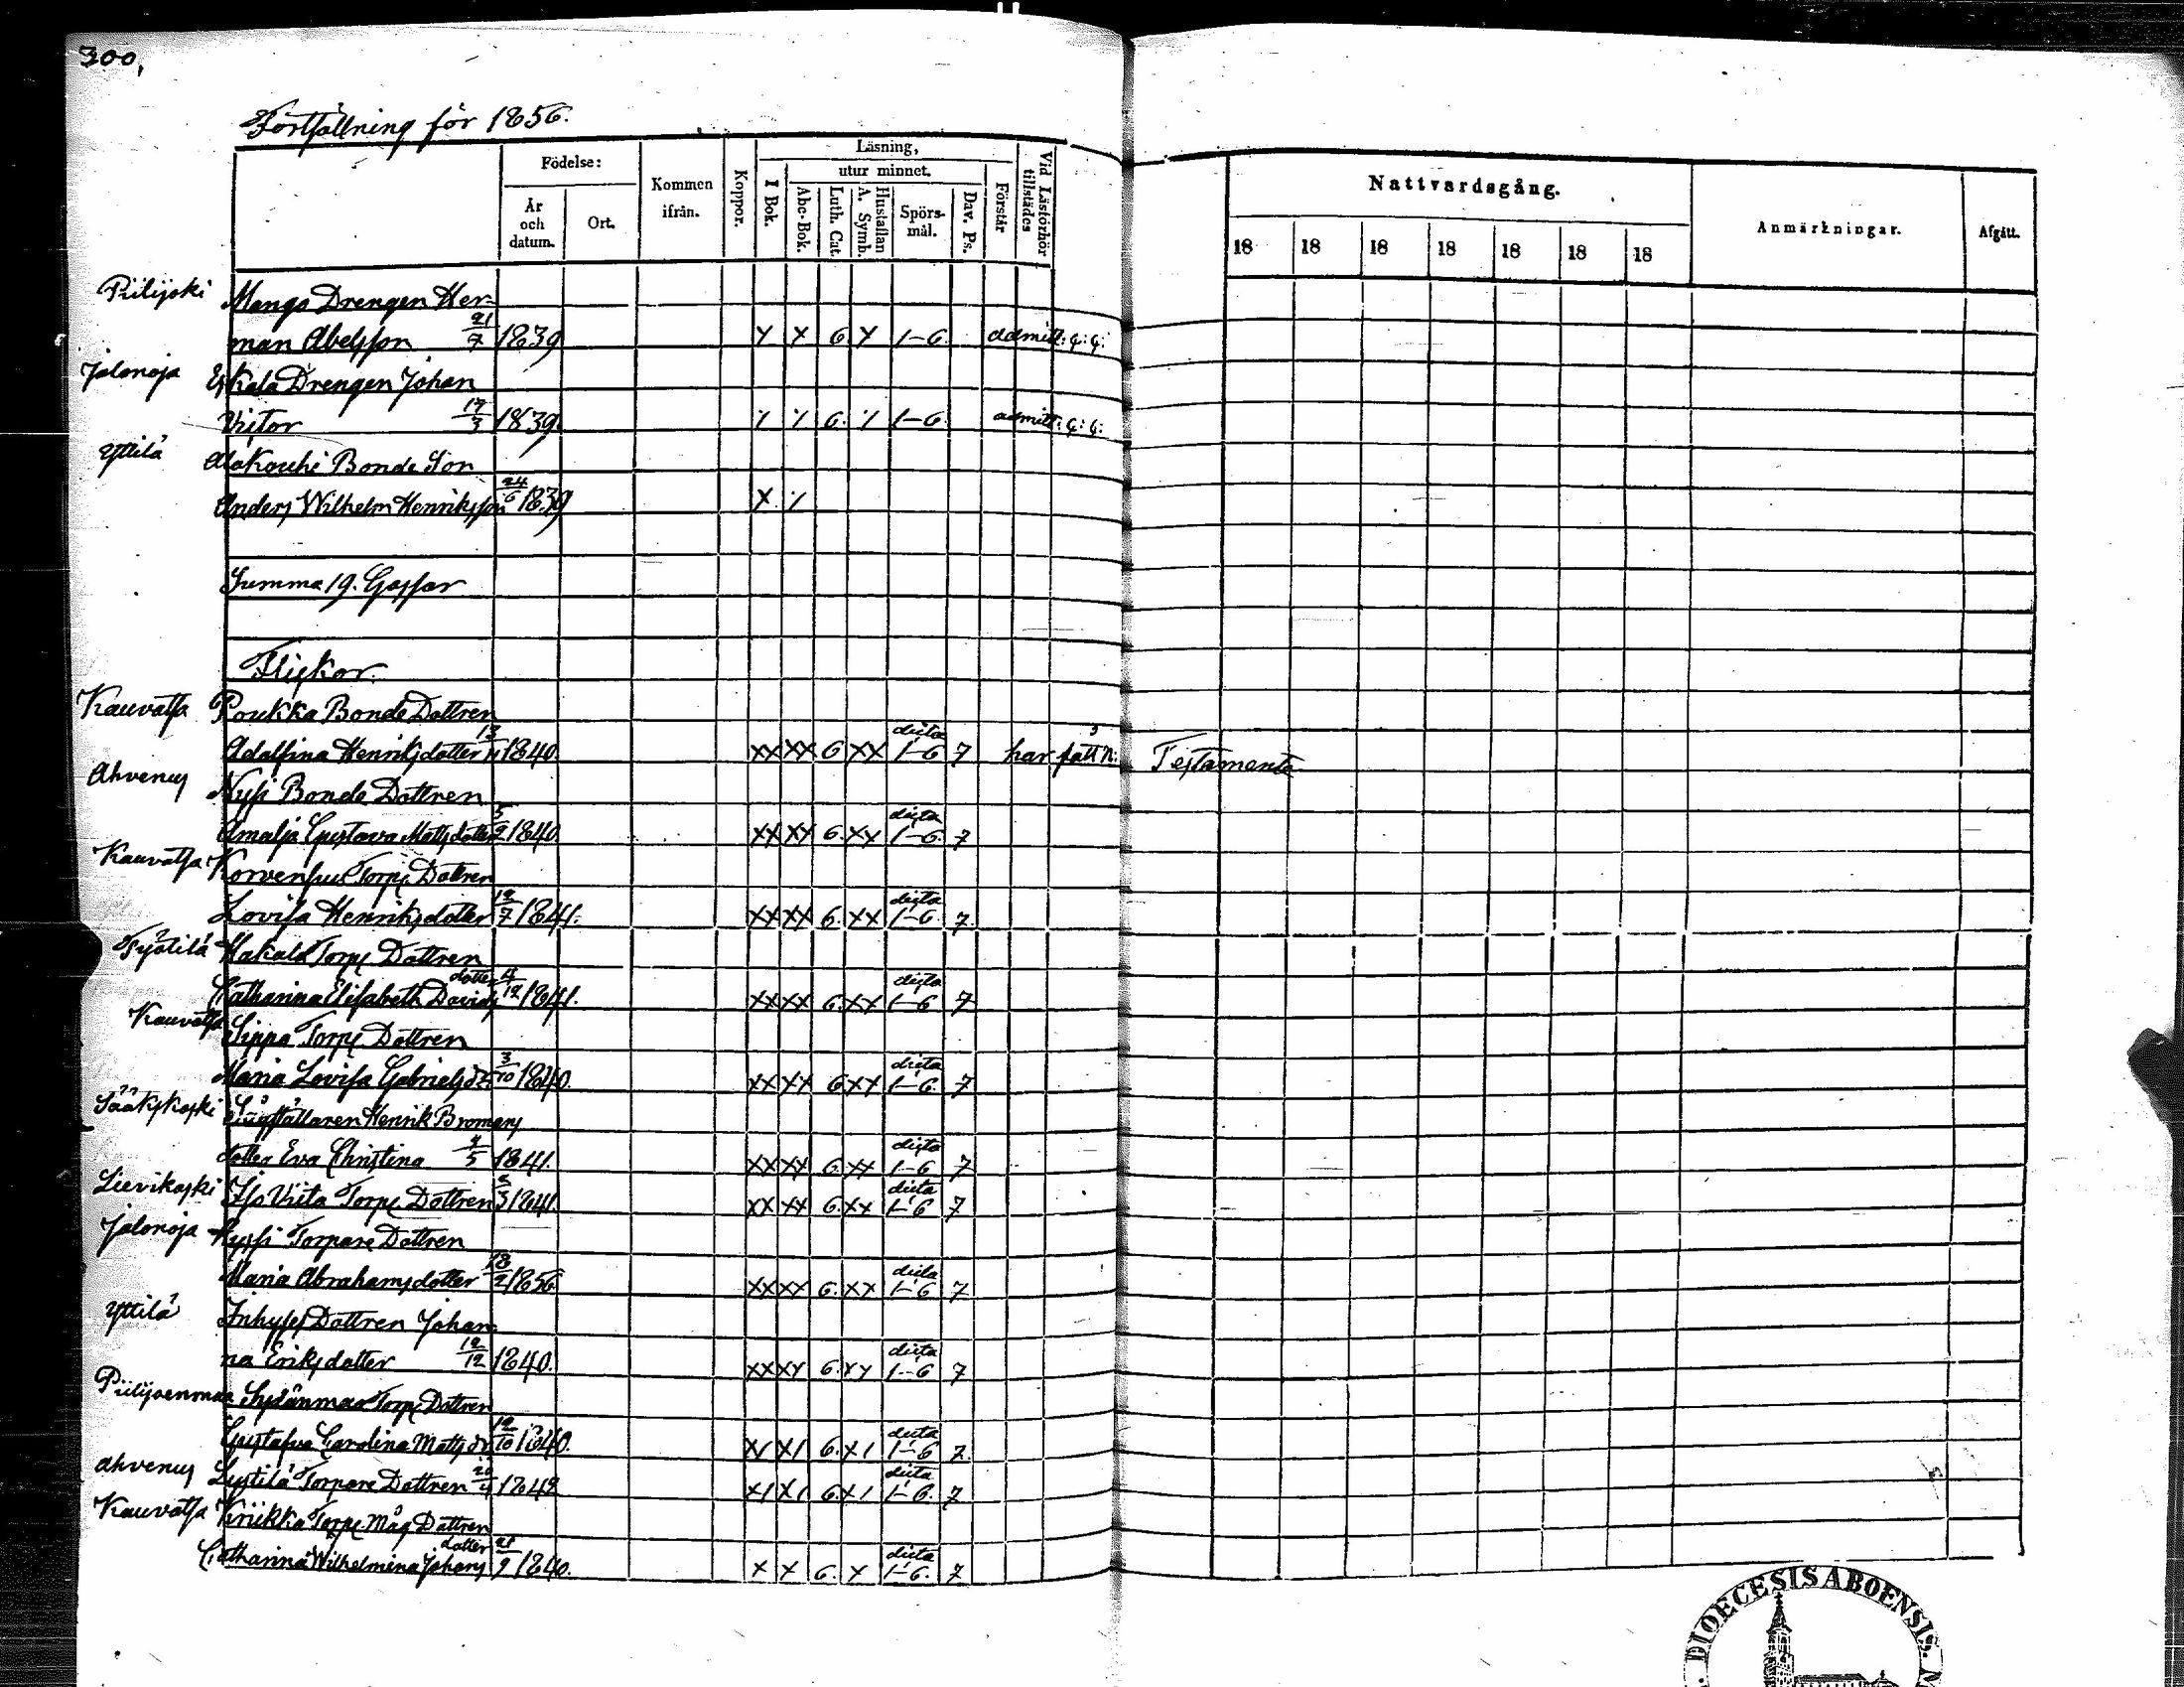 300,
Fortsällning för 1856.
Födelse:
År och datum.
Ort.
Kommen ifrån.
Koppor.
Läsning,
I Bok.
utur minnet.
Abc-Bok.
Luth. Cat.
A. Symb. Hustaflan
Spörsmål.
Dav. Ps.
Förstår
Vid Läsförhör tillstädes
Nattvardsgång.
18 18 18 18 18 18 18
Anmärkningar.
Afgått.
Piilijoki Mangs Drengen Her-
man Abelsson 21/7 1839 X X 6 X 1-6 admitt:
Jalonoja Eskala Drengen Johan
Victor 17/3 1839 / / 6. / 1-6 admitt:
Yttilä Alakouhi Bonde Son
Anders Wilhelm Henriksson 24/6 1839 X /
Summa 19. Gossar
Flickor.
Kauvatsa Poukka Bonde Dottren
Adolfina Henriksdotter 13/11 1840. XX XX 6 XX dicta 1-6 7 har fått N: Testamente
Ahvenus Nysi Bonde Dottren
Amalia Gustava Mattsdotter 5/2 1840. XX XX 6. XX dicta 1-6. 7
Kauvatsa Korvensuu Torp. Dottren
Lovisa Henriksdotter 12/7 1841. XX XX 6. XX dicta 1-6. 7
Työtilä Hakala Torp. Dottren
Catharina Elisabeth Davids dotter 4/12 1841. XX XX 6 XX dicta 1-6 7
Kauvatsa Sippa Torp. Dottren
Maria Lovisa Gabriels dr 3/10 1840. XX XX 6 XX dicta 1-6. 7
Sääkskoski Sågställaren Henrik Bromans
dotter Eva Christina 4/5 1841. XX XX 6. XX dicta 1-6 7
Lievikoski Iso Viita Torp. Dottren 1841. XX XX 6. XX dicta 1-6 7
Jalonoja Torpare Dottren
Maria Abrahamsdotter 18/2 1856 XX XX 6. XX dicta 1-6 7
Yttilä Dottren Johan-
na Eriksdotter 12/12 1840. XX XX 6. XX dicta 1-6 7
Piilijoenmaa Sydänmaa Torp. Dottren
Gustafva Carolina Matts dr 12/10 1840. X/ X/ 6. X/ dicta 1-6 7
Ahvenus Lystilä Torpare Dottren 1842 X/ X/ 6. X/ dicta 1-6. 7
Kauvatsa Kriikka Torp. Måg Dottren
Catharina Wilhelmina Johans dotter 21/9 1840. X X 6. X dicta 1-6. 7
DIOECESIS ABOENSIS.